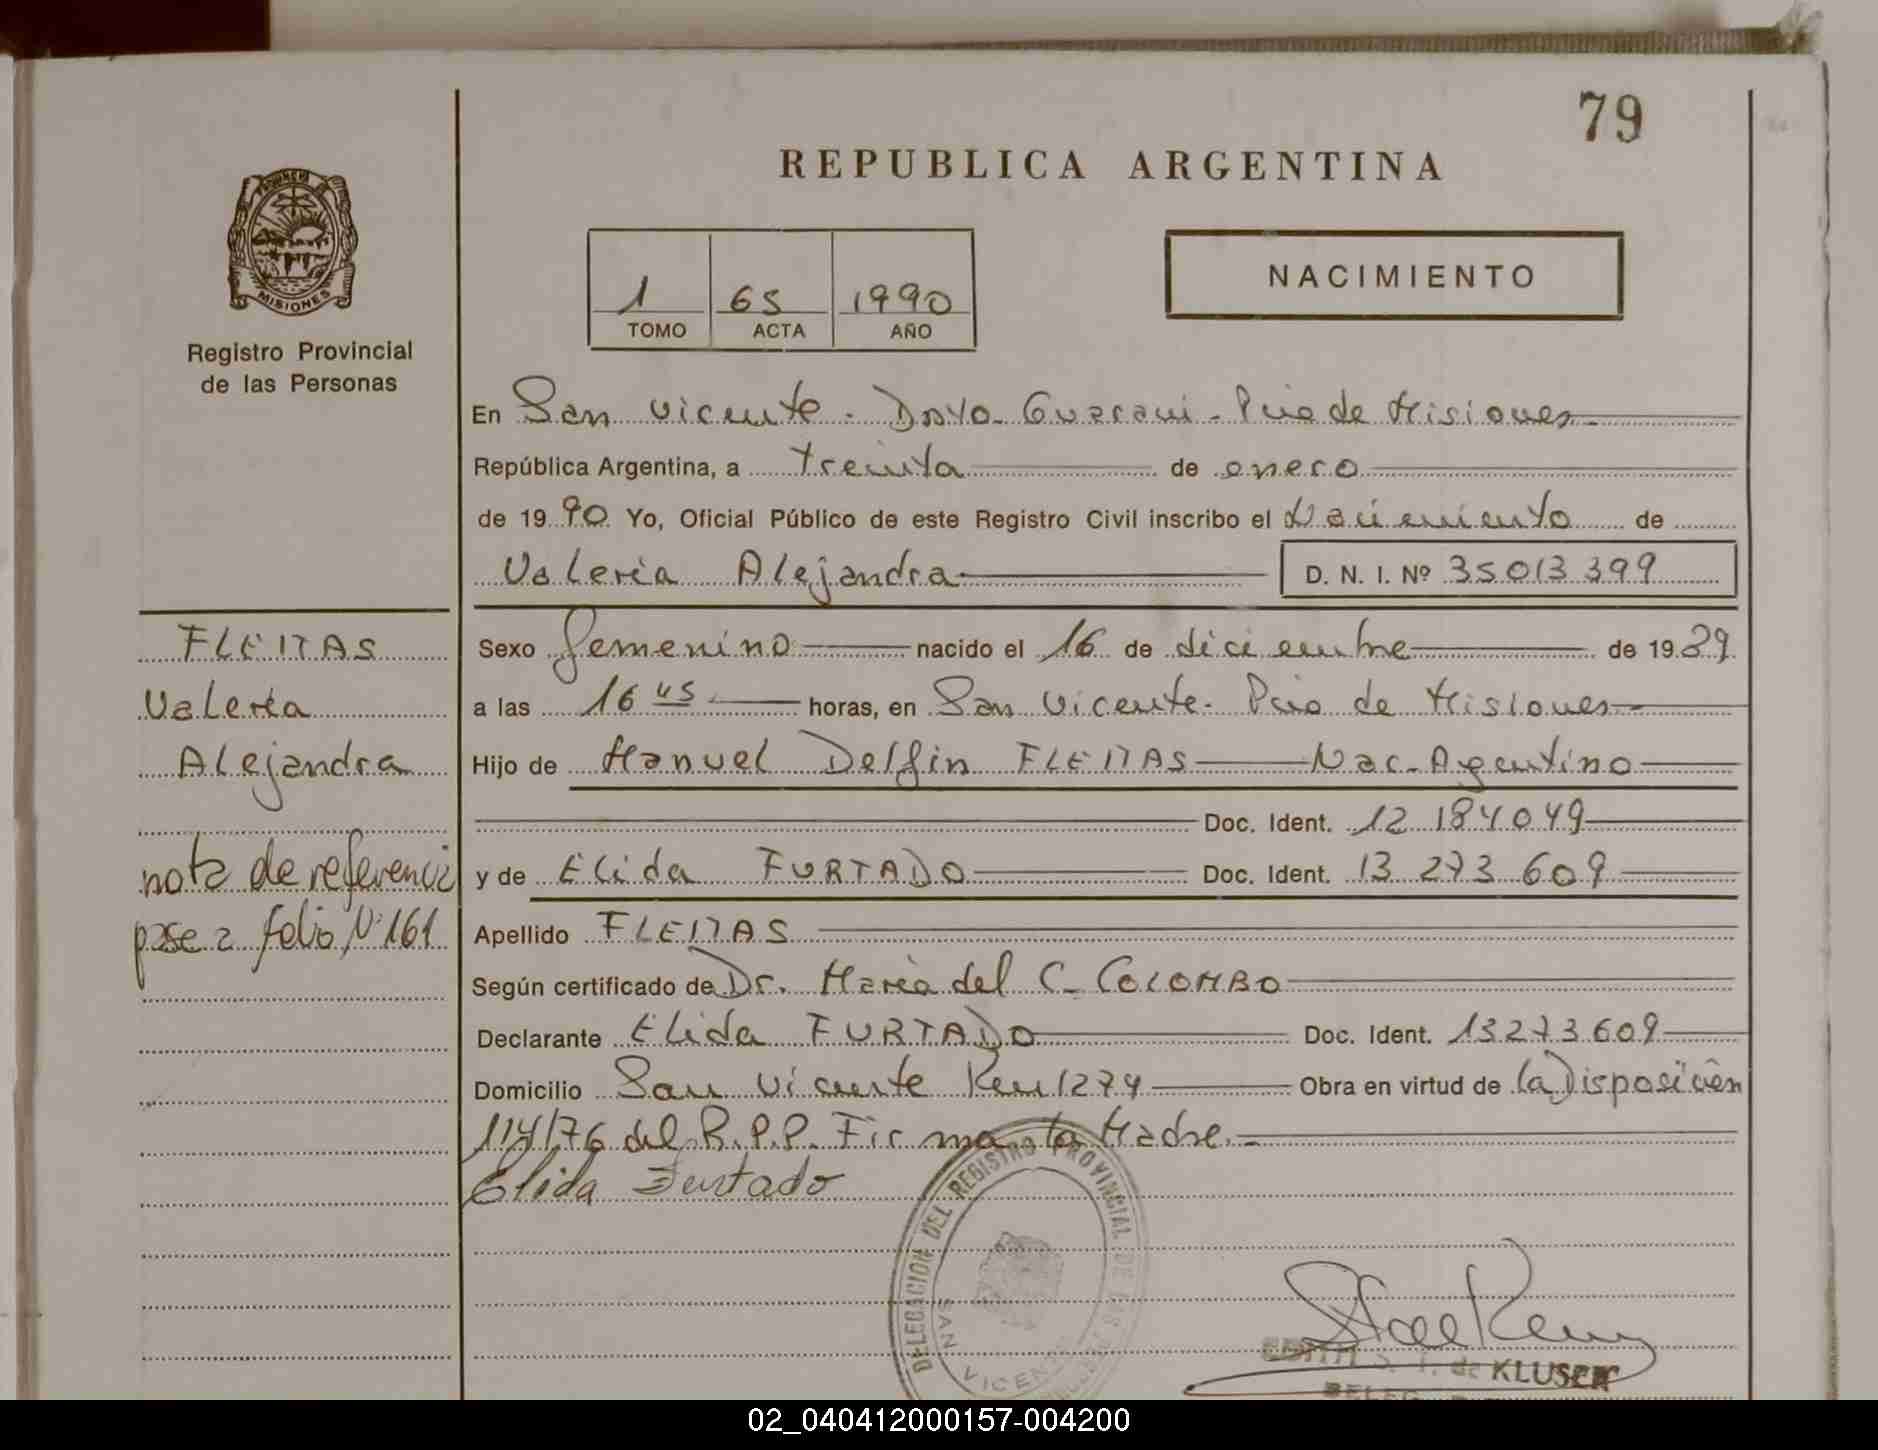 79
REPUBLICA ARGENTINA
MISIONES
Registro Provincial
de las Personas
1 65 1990
TOMO ACTA AÑO
NACIMIENTO
En San Vicente - Dpto. Guarani - Pcia de Misiones
República Argentina, a treinta de enero
de 1990 Yo, Oficial Público de este Registro Civil inscribo el Nacimiento de
Valeria Alejandra D. N. I. Nº 35013399
FLEITAS
Valeria
Alejandra
nota de referencia
pase a folio Nº 161
Sexo femenino nacido el 16 de diciembre de 1989
a las 16 hs horas, en San Vicente - Pcia de Misiones
Hijo de Manuel Delfin FLEITAS Nac. Argentino
Doc. Ident. 12 184 049
y de Elida FURTADO Doc. Ident. 13 273 609
Apellido FLEITAS
Según certificado de Dr. María del C. COLOMBO
Declarante Elida FURTADO Doc. Ident. 13273609
Domicilio San Vicente Km 1274 Obra en virtud de la Disposición
114/76 del R.P.P. Firma la Madre.
Elida Furtado
DELEGACION DEL REGISTRO PROVINCIAL DE LAS
SAN VICENTE
de KLUSER
02_040412000157-004200